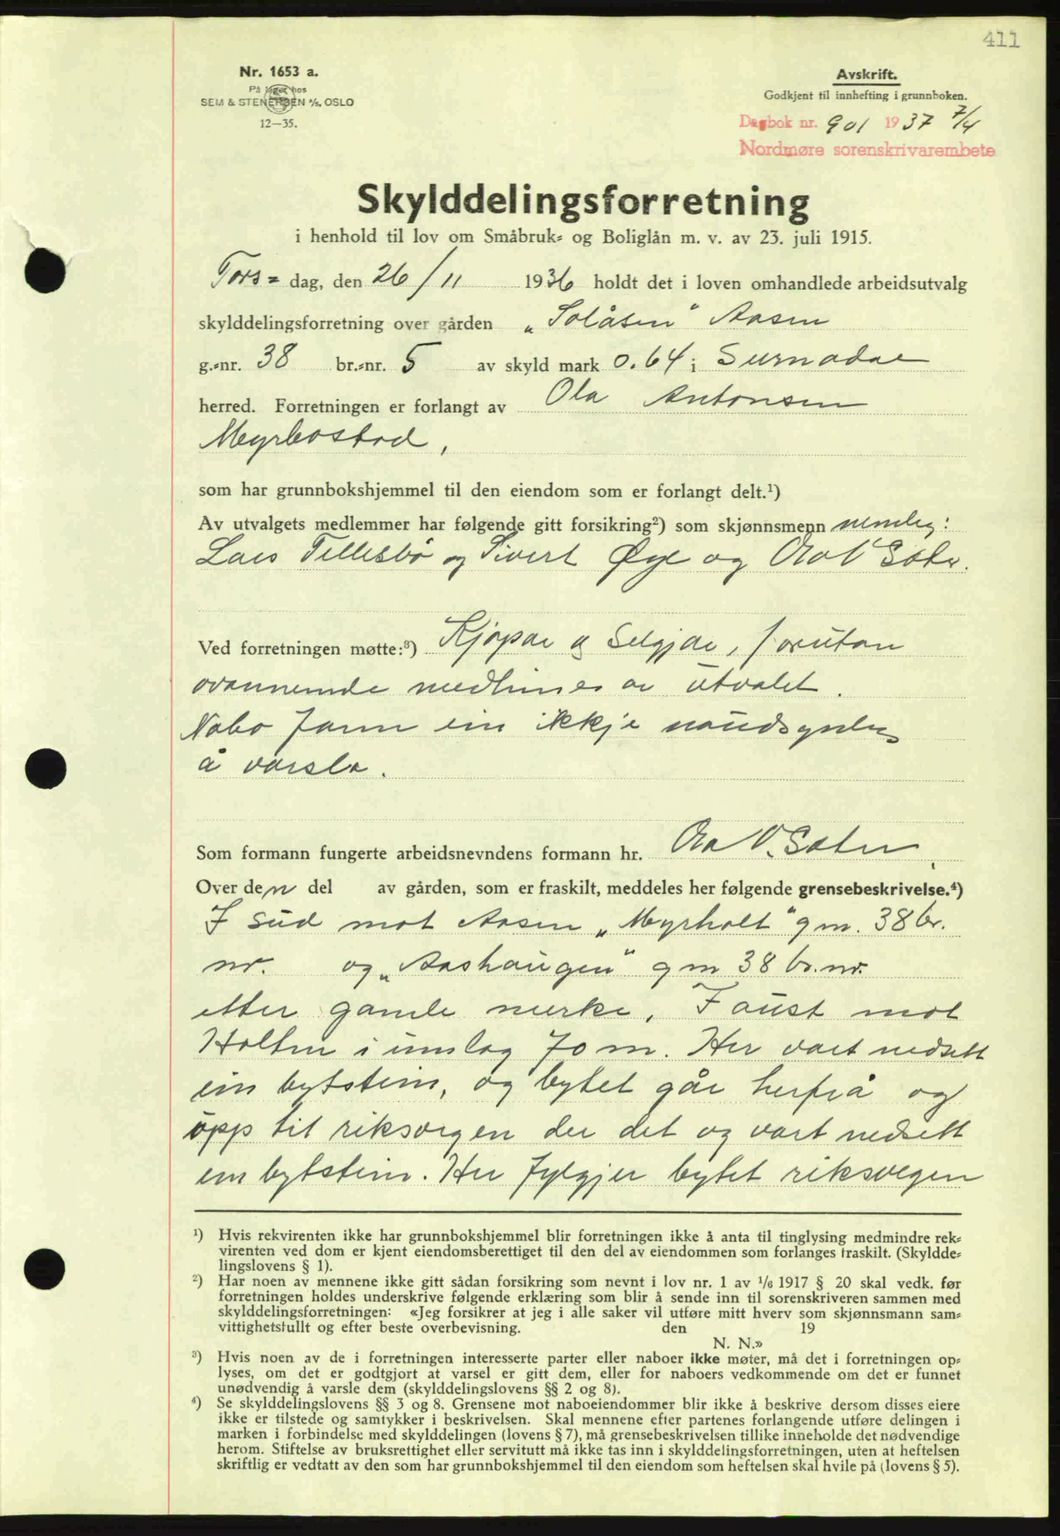 411
Nr. 1653 a.
På lager hos
SEM & STENERSEN A/S, OSLO
12-35.
Avskrift.
Godkjent til innhefting i grunnboken.
Dagbok nr. 901 1937 7/4
Nordmøre sorenskrivarembete
Skylddelingsforretning
i henhold til lov om Småbruk= og Boliglån m. v. av 23. juli 1915.
Tors= dag, den 26/11 1936 holdt det i loven omhandlede arbeidsutvalg
skylddelingsforretning over gården „Solåsen" Aasen
g.=nr. 38 br.=nr. 5 av skyld mark 0.64 i Surnadal
herred. Forretningen er forlangt av Ola Antonsen
Myrbostad,
som har grunnbokshjemmel til den eiendom som er forlangt delt.¹)
Av utvalgets medlemmer har følgende gitt forsikring²) som skjønnsmenn nemleg:
Lars Tellesbø og Sivert Øye og Ola V Sæter.
Ved forretningen møtte:³) Kjøpar og Selgjar, forutan
ovannemde medlimer av utvalet.
Nabo fann ein ikkje naudsynleg
å varsla.
Som formann fungerte arbeidsnevndens formann hr. Ola V. Sæter.
Over den del av gården, som er fraskilt, meddeles her følgende grensebeskrivelse.⁴)
I sud mot Aasen „Myrholt" g nr. 38 br.
nr. og „Aashaugen" g nr 38 br. nr.
etter gamle merke. I aust mot
Holten i umlag 70 m. Her vart nedsett
ein bytstein, og bytet går herfrå og
opp til riksvegen der det og vart nedsett
ein bytstein. Her fylgjer bytet riksvegen
¹) Hvis rekvirenten ikke har grunnbokshjemmel blir forretningen ikke å anta til tinglysing medmindre rek=
virenten ved dom er kjent eiendomsberettiget til den del av eiendommen som forlanges fraskilt. (Skyldde=
lingslovens § 1).
²) Har noen av mennene ikke gitt sådan forsikring som nevnt i lov nr. 1 av 1/6 1917 § 20 skal vedk. før
forretningen holdes underskrive følgende erklæring som blir å sende inn til sorenskriveren sammen med
skylddelingsforretningen: «Jeg forsikrer at jeg i alle saker vil utføre mitt hverv som skjønnsmann sam=
vittighetsfullt og efter beste overbevisning. den 19
N. N.»
³) Hvis noen av de i forretningen interesserte parter eller naboer ikke møter, må det i forretningen op=
lyses, om det er godtgjort at varsel er gitt dem, eller for naboers vedkommende om det er funnet
unødvendig å varsle dem (skylddelingslovens §§ 2 og 8).
⁴) Se skylddelingslovens §§ 3 og 8. Grensene mot naboeiendommer blir ikke å beskrive dersom disses eiere
ikke er tilstede og samtykker i beskrivelsen. Skal mennene efter partenes forlangende utføre delingen i
marken i forbindelse med skylddelingen (lovens § 7), må grensebeskrivelsen tillike inneholde det nødvendige
herom. Stiftelse av bruksrettighet eller servitutt må ikke tas inn i skylddelingsforretningen, uten at heftelsen
skriftlig er vedtatt av den som har grunnbokshjemmel til den eiendom som heftelsen skal hvile på (lovens § 5).